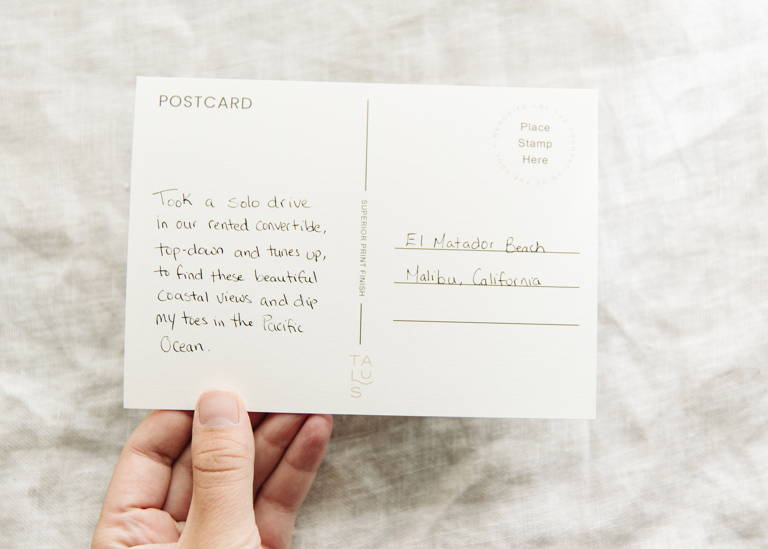 POSTCARD
Took a solo drive
in our rented convertible,
top-down and tunes up,
to find these beautiful
coastal views and dip
my toes in the Pacific
Ocean.
SUPERIOR PRINT FINISH
TA
LU
S
Place
Stamp
Here
El Matador Beach
Malibu, California